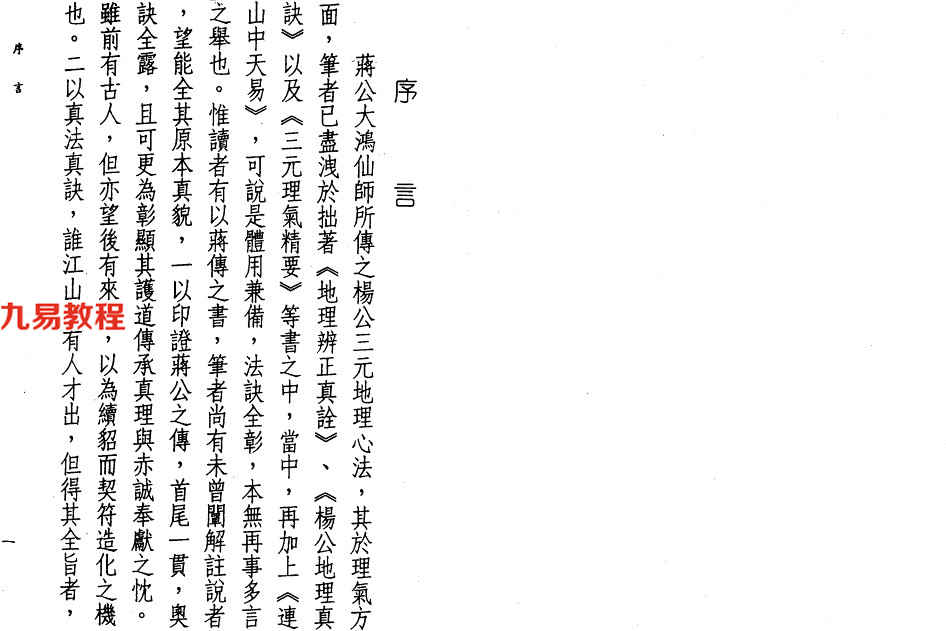 序言
蔣公大鴻仙師所傳之楊公三元地理心法，其於理氣方
面，筆者已盡洩於拙著《地理辨正真詮》、《楊公地理真
訣》以及《三元理氣精要》等書之中，當中，再加上《連
山中天易》，可說是體用兼備，法訣全彰，本無再事多言
之舉也。惟讀者有以蔣傳之書，筆者尚有未曾闡解註說者
，望能全其原本真貌，一以印證蔣公之傳，首尾一貫，奧
訣全露，且可更為彰顯其護道傳承真理與赤誠奉獻之忱。
雖前有古人，但亦望後有來，以為續貂而契符造化之機
也。二以真法真訣，誰江山有人才出，但得其全旨者，
序言
一
九易教程